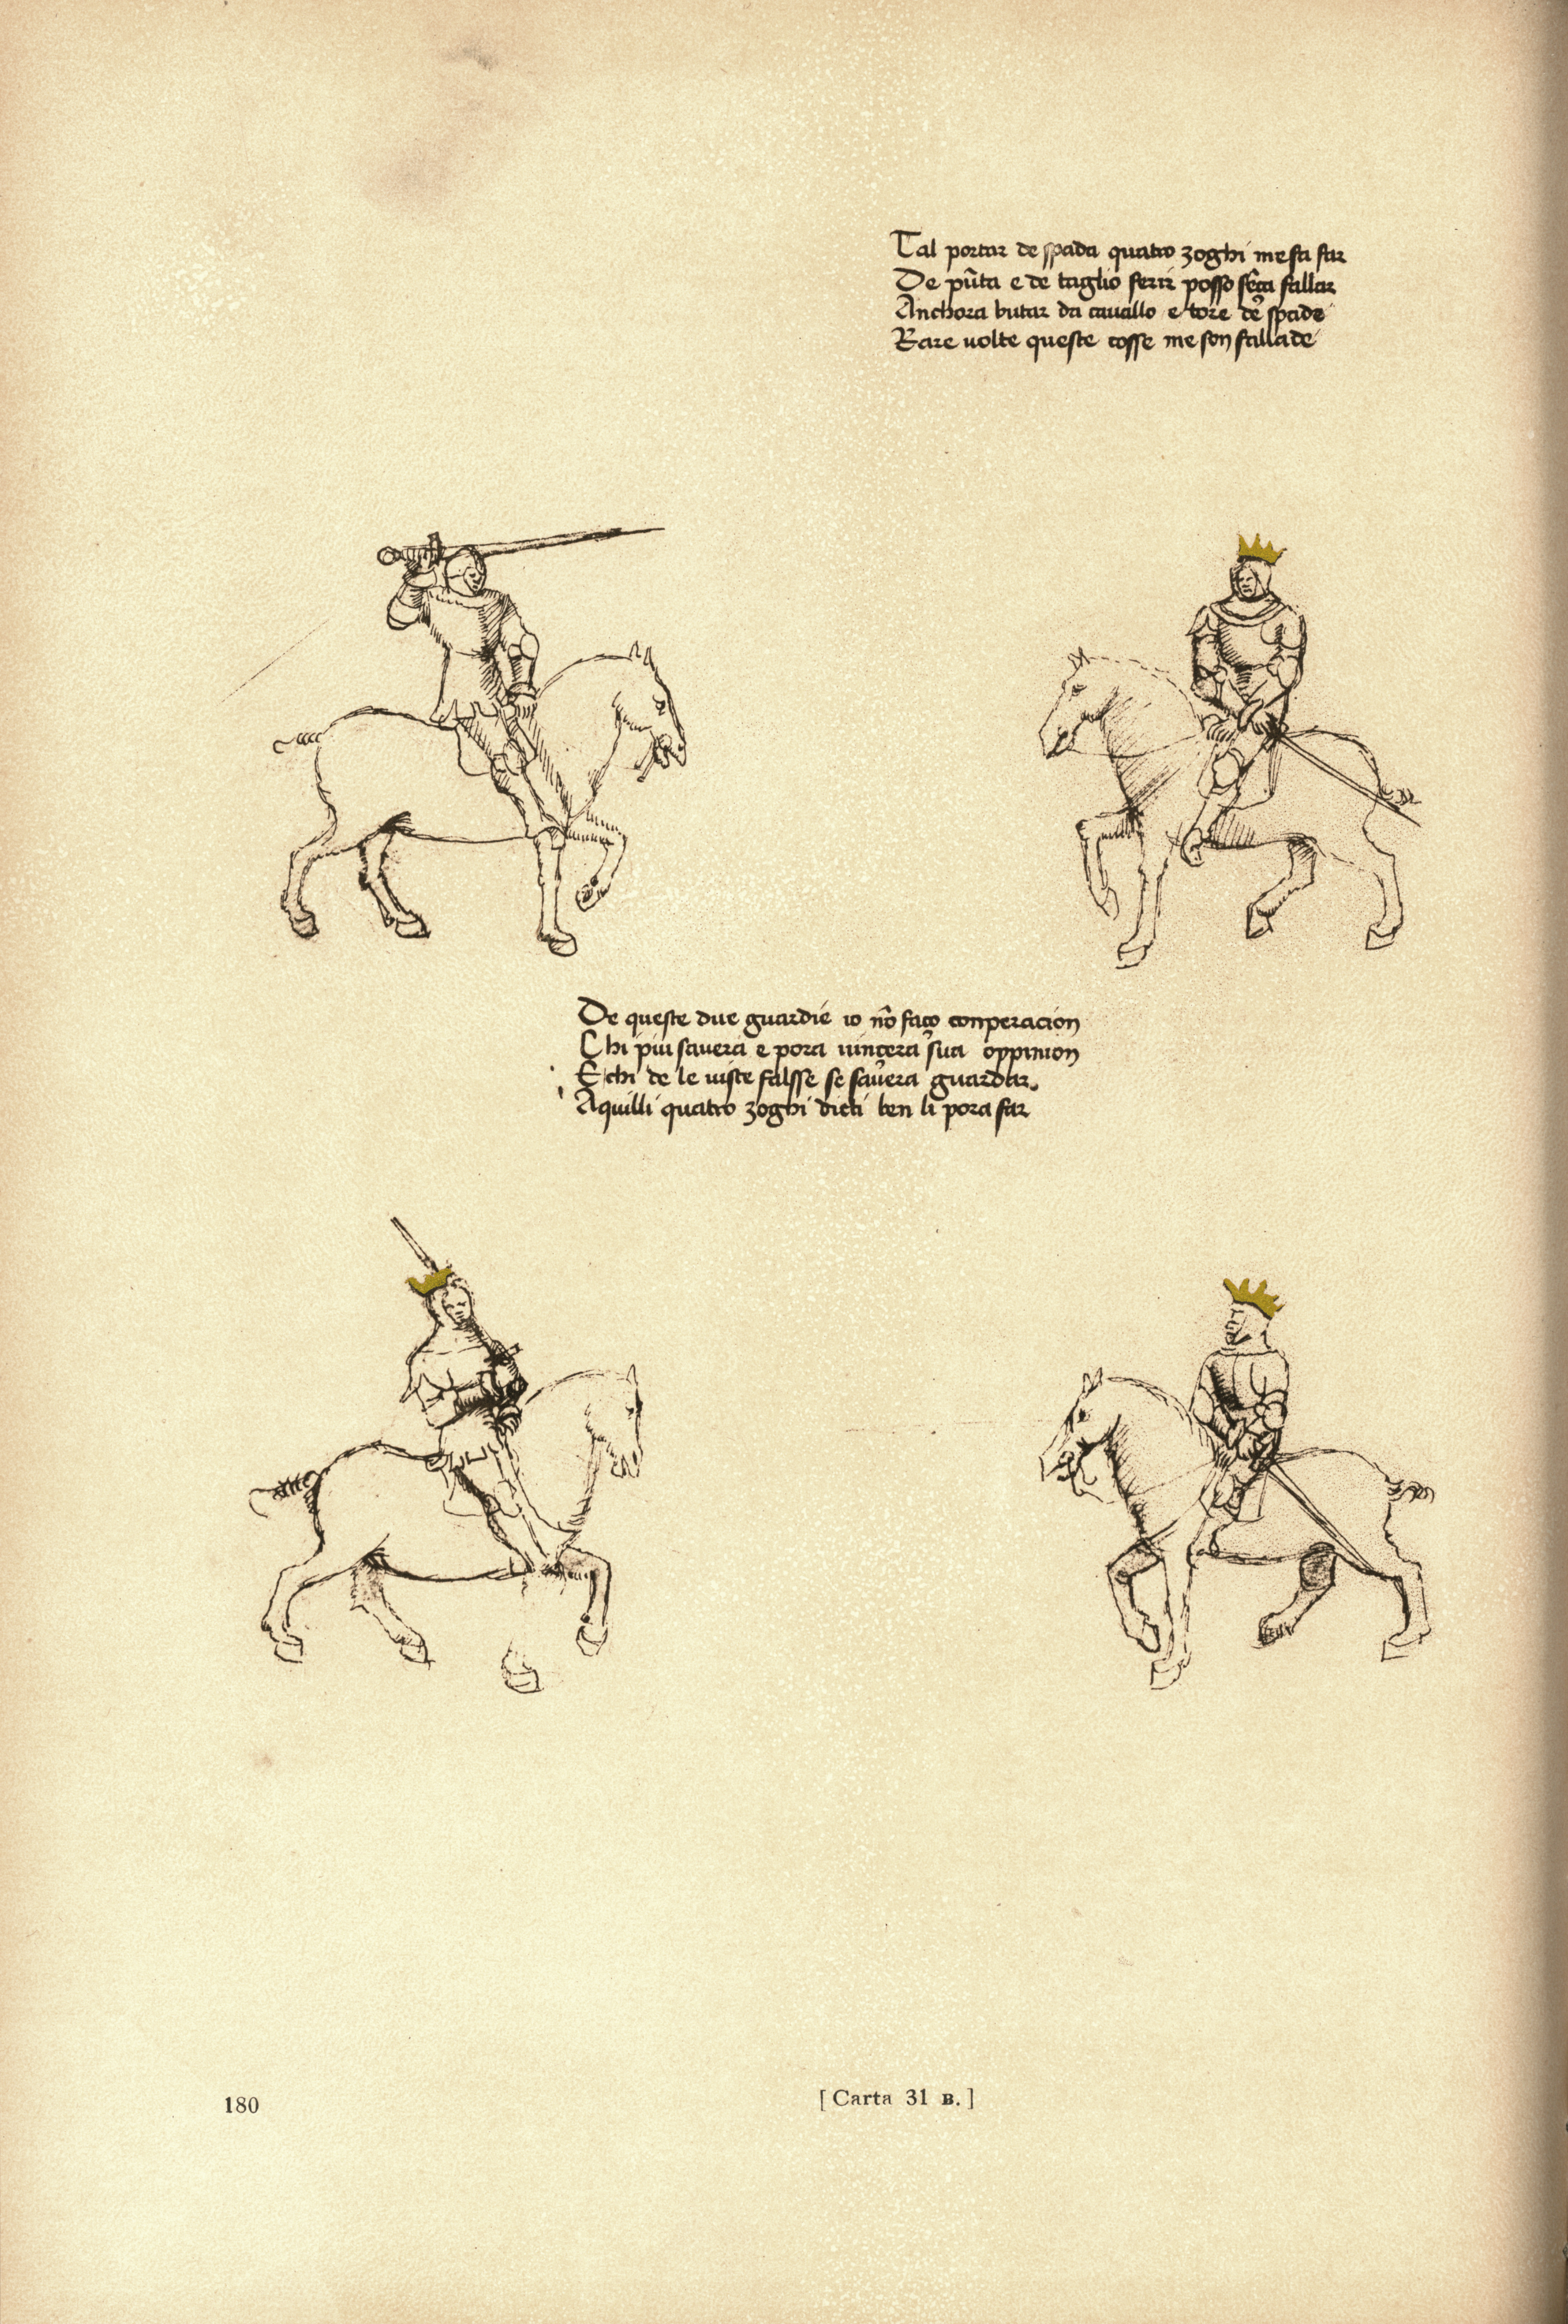 Tal portar de spada quatro zoghi me fa far
De pūta e de taglio ferir posso sēça fallar
Anchora butar da cavallo e tore de spade
Rare uolte queste cosse me son fallade
De queste due guardie io nō faço conperacion
Chi piu sauera e pora uincera sua oppinion
E chi de le uiste falsse se sauera guardar.
Aquilli quatro zoghi dicti ben li pora far
180
[Carta 31 B.]